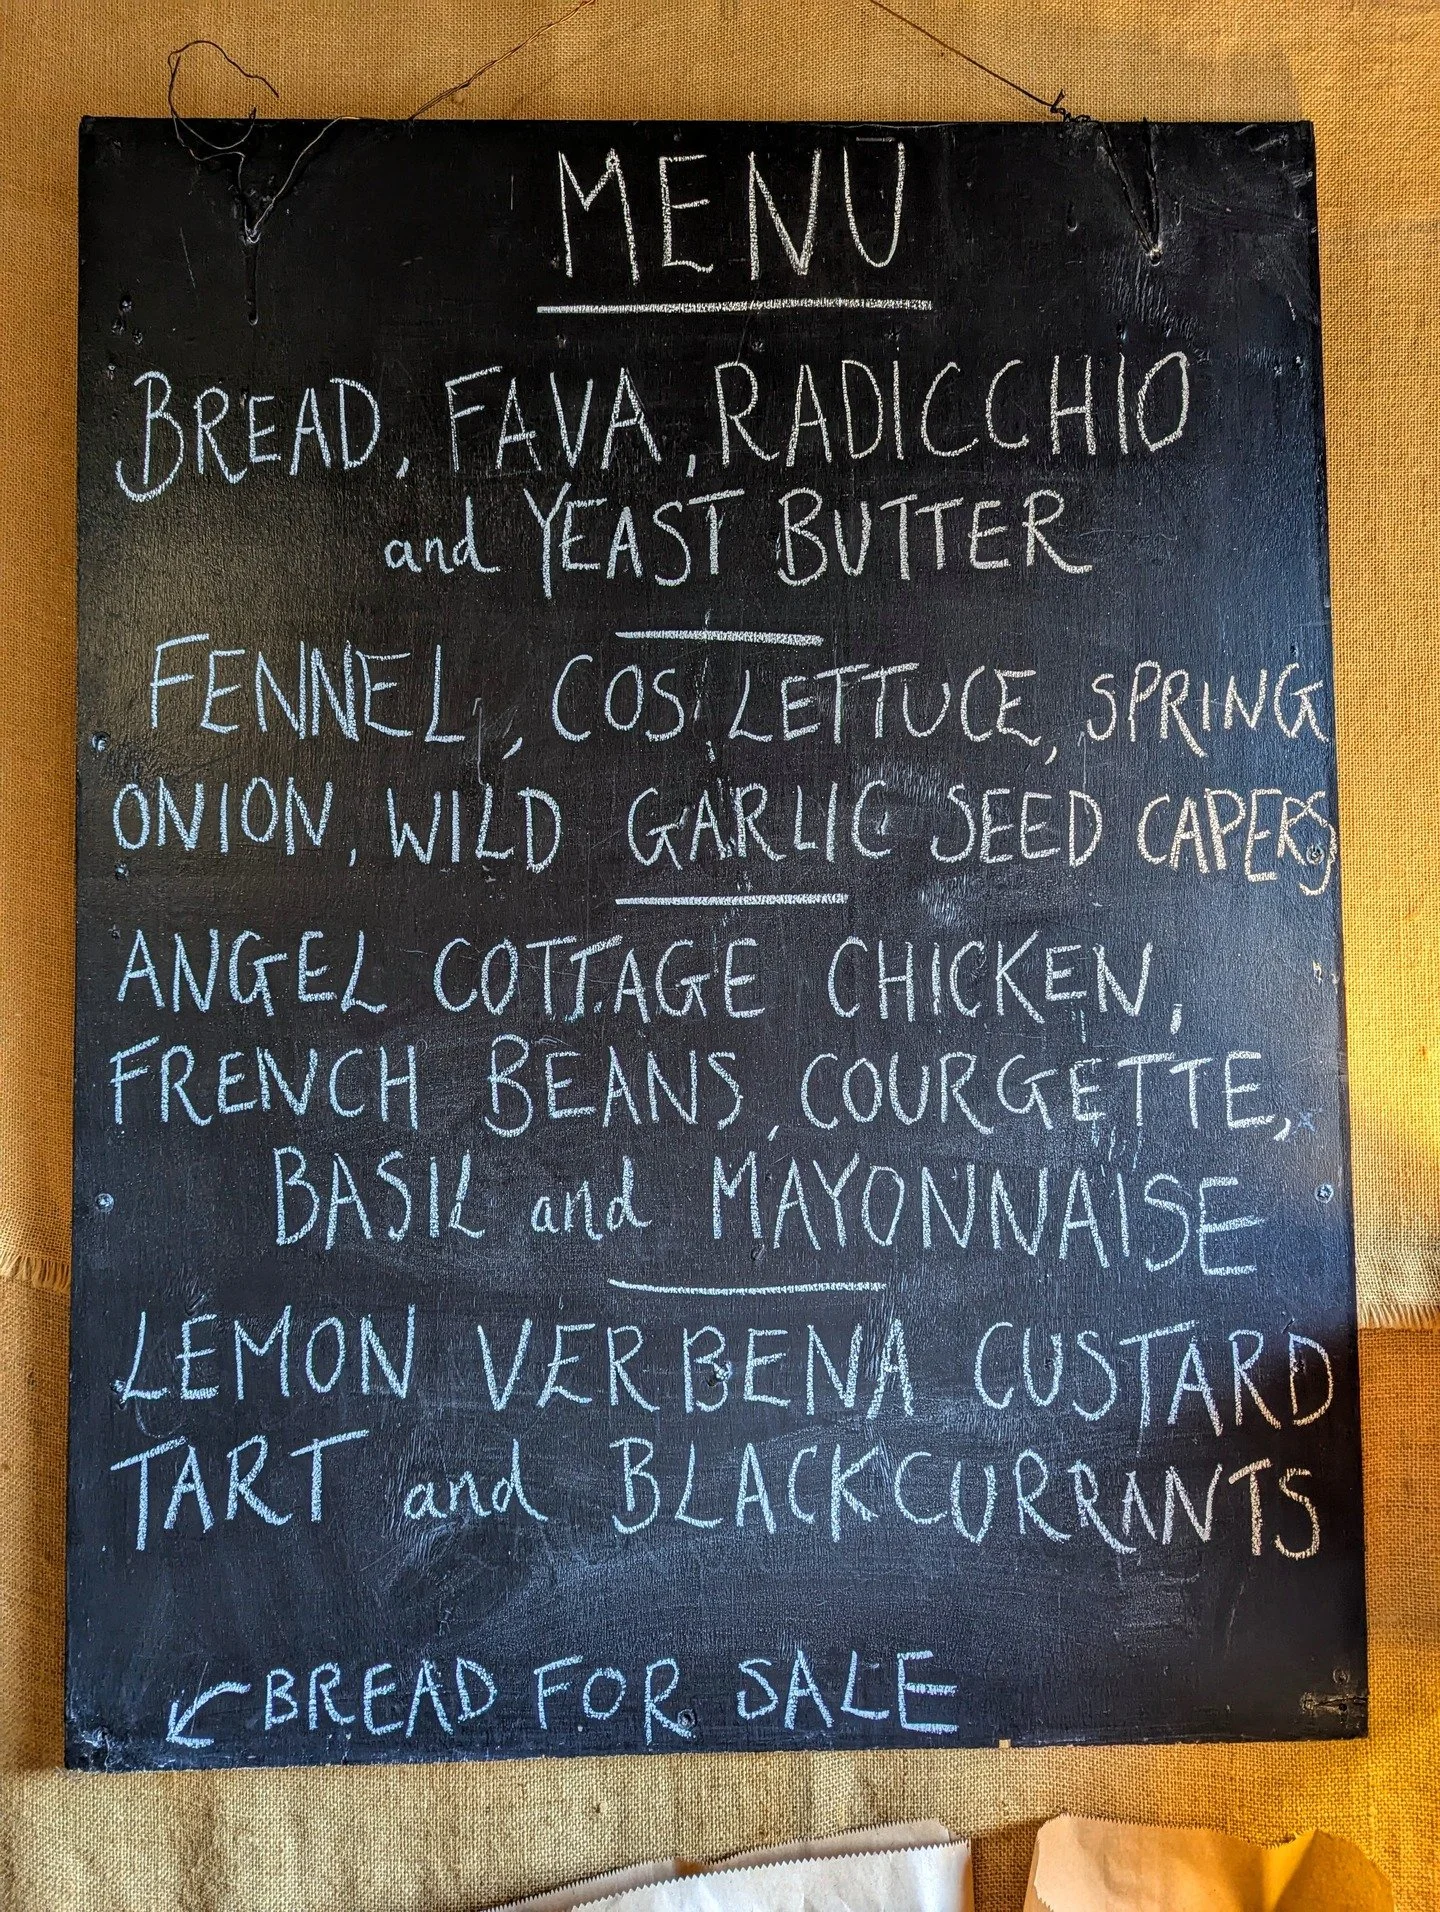 MENU
BREAD, FAVA, RADICCHIO
and YEAST BUTTER
FENNEL, COS LETTUCE, SPRING
ONION, WILD GARLIC SEED CAPERS
ANGEL COTTAGE CHICKEN,
FRENCH BEANS, COURGETTE,
BASIL and MAYONNAISE
LEMON VERBENA CUSTARD
TART and BLACKCURRANTS
← BREAD FOR SALE